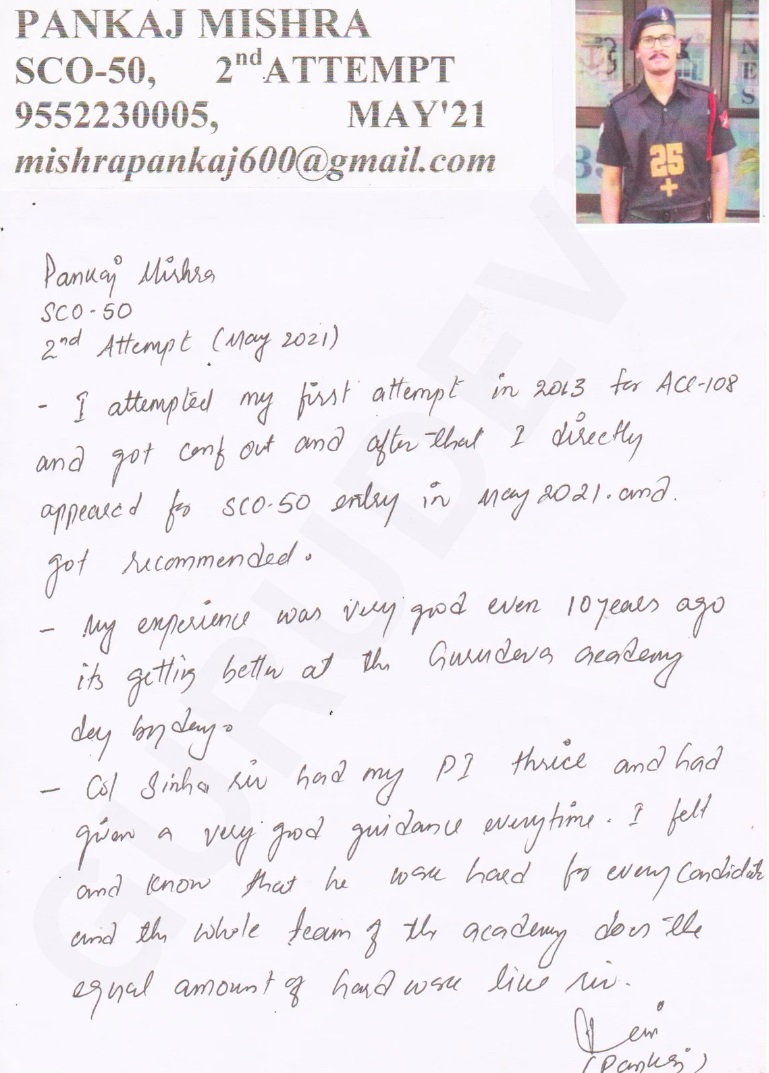 PANKAJ MISHRA
SCO-50, 2nd ATTEMPT
9552230005, MAY'21
mishrapankaj600@gmail.com
25
+
N
E
S
GURUDEV
Pankaj Mishra
SCO-50
2nd Attempt (May 2021)
- I attempted my first attempt in 2013 for ACC-108
and got conf out and after that I directly
appeared for SCO-50 entry in May 2021. and.
got recommended.
- My experience was very good even 10 years ago
its getting better at the Gurudeva academy
day by day.
- Col Sinha sir had my PI thrice and had
given a very good guidance everytime. I felt
and know that he work hard for every candidate
and the whole team of the academy does the
equal amount of hard work like sir.
(Pankaj)